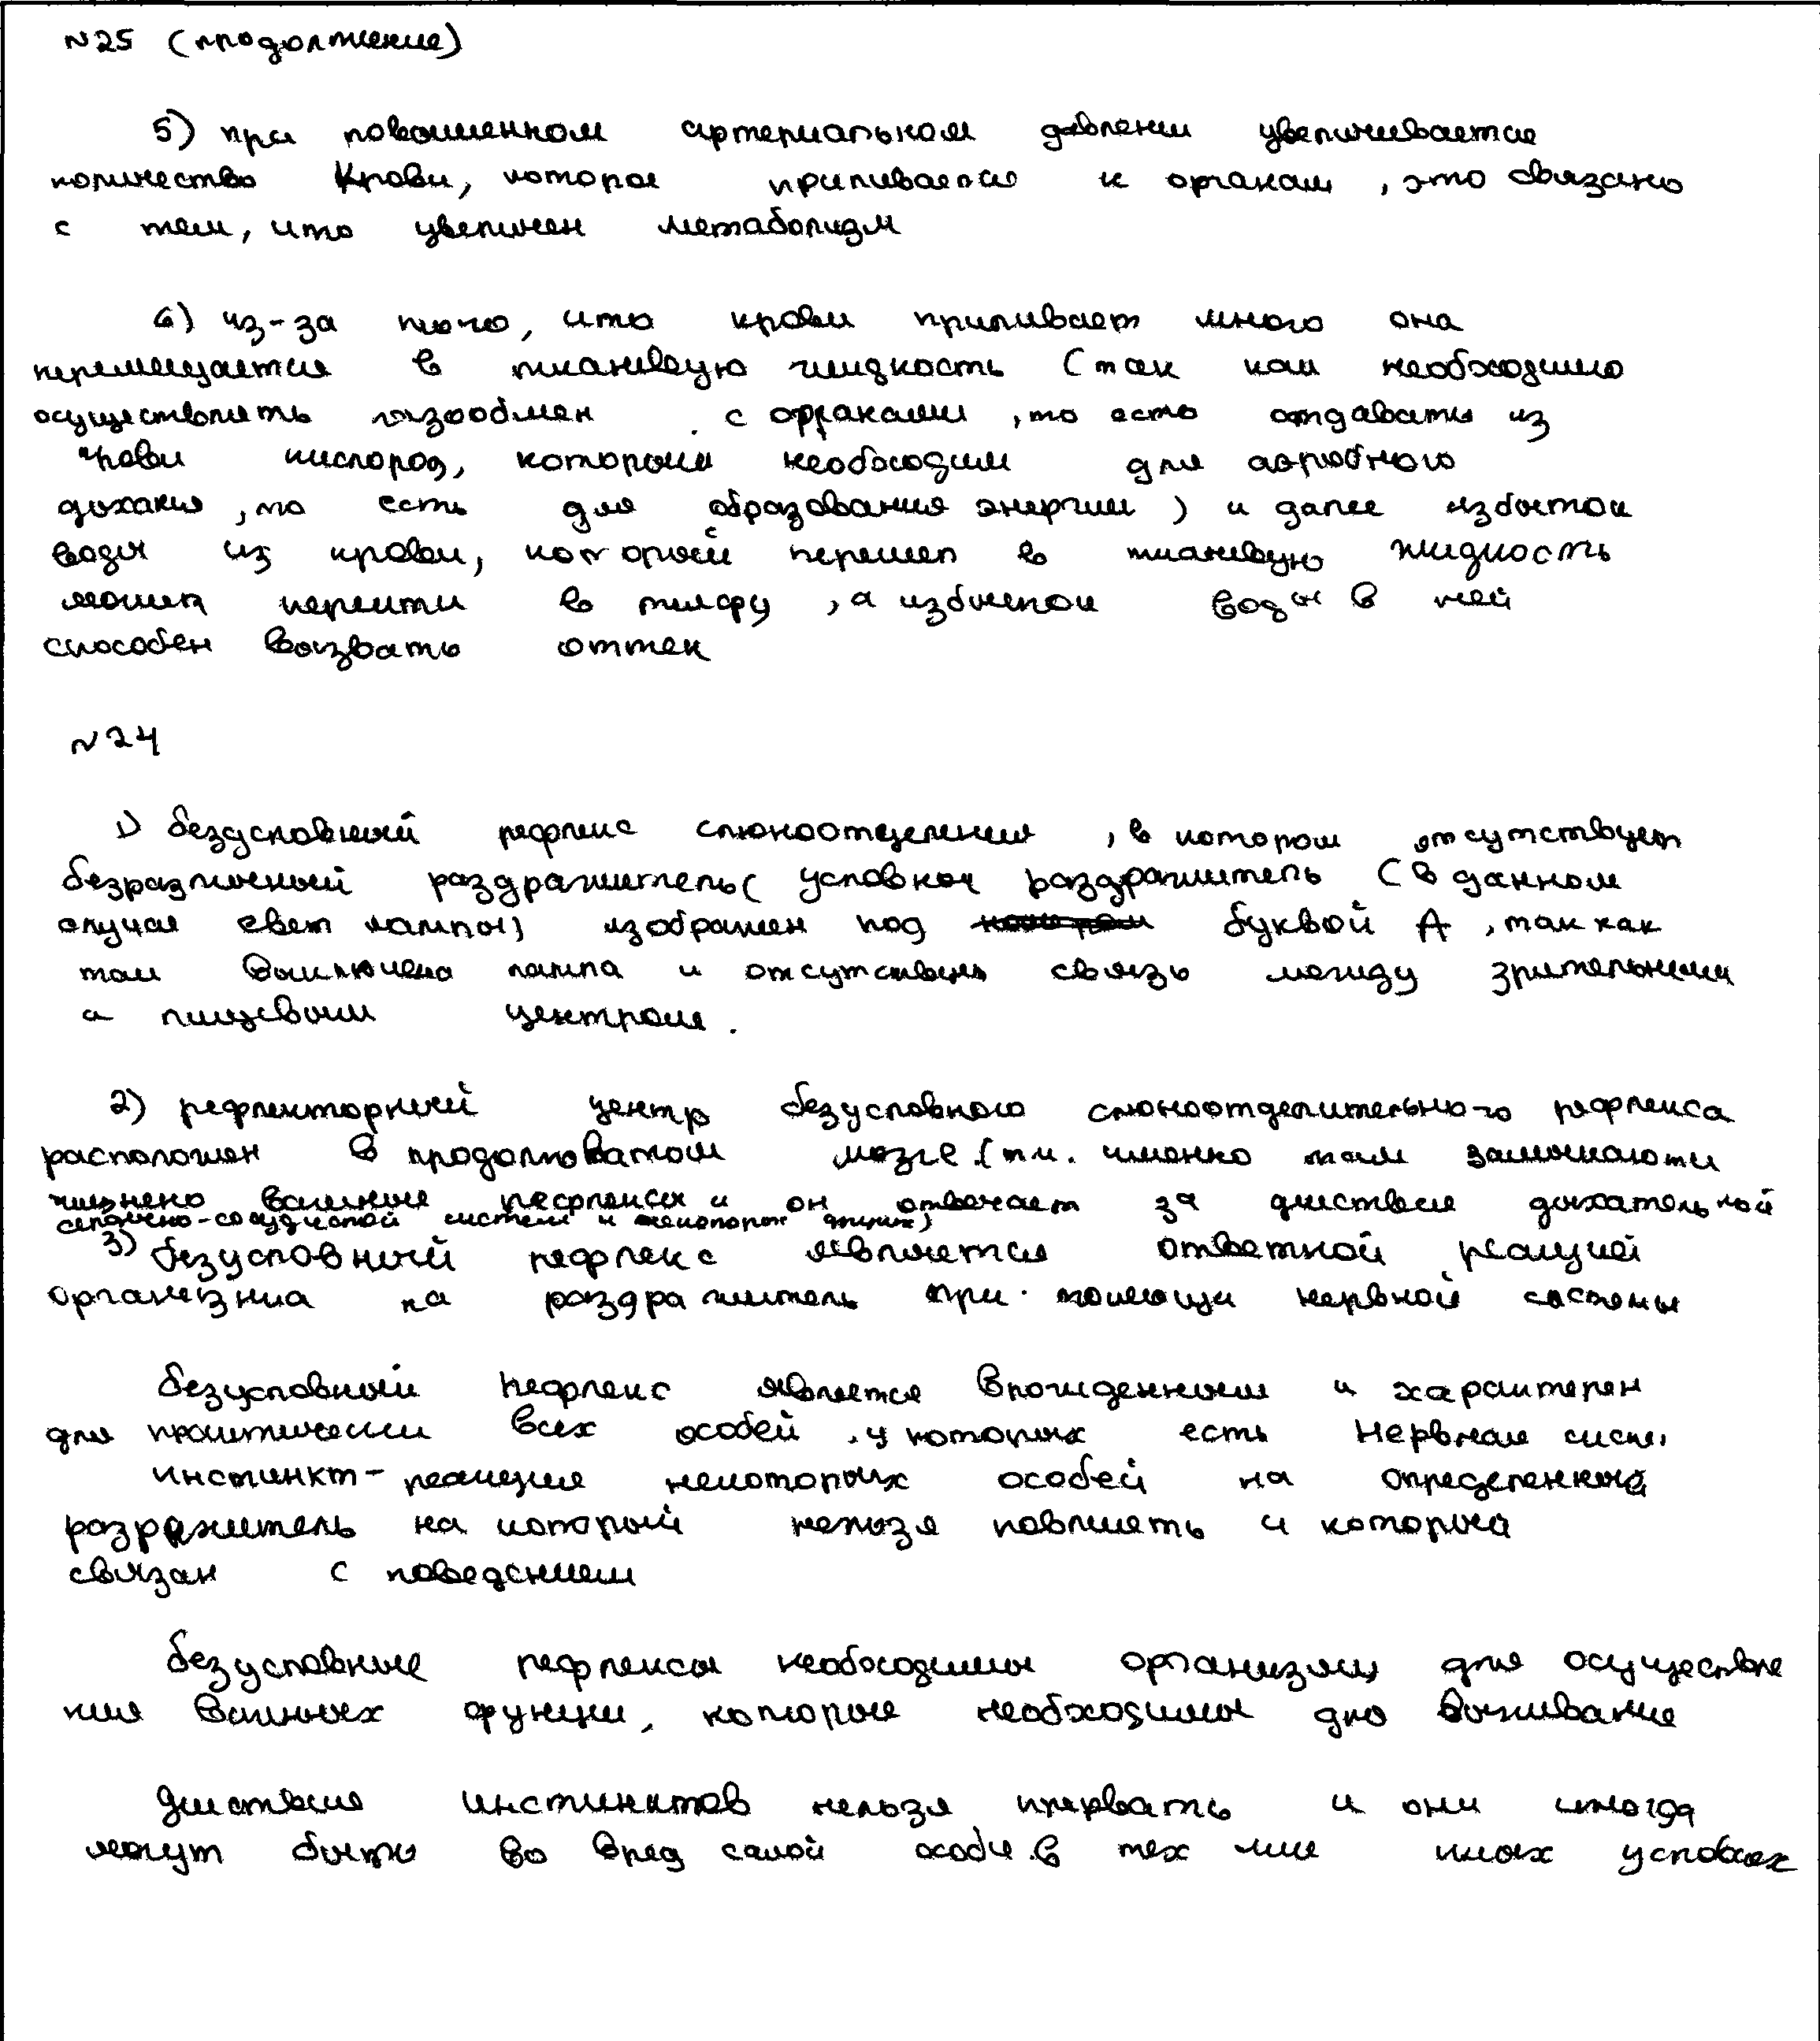 №25 (продолжение)
5) при повышенном артериальном давлении увеличивается
количество крови, которое приливается к органам, это связано
с тем, что увеличен метаболизм
6) из-за того, что крови приливает много она
перемещается в тканевую жидкость (так как необходимо
осуществлять газообмен с органами, то есть отдавать из
крови кислород, который необходим для аэробного
дыхания, то есть для образования энергии) и далее избыток
воды из крови, который перешел в тканевую жидкость
может перейти в лимфу, а избыток воды в ней
способен вызвать оттек
№24
1) безусловный рефлекс слюноотделения, в котором отсутствует
безразличный раздражитель( условный раздражитель (в данном
случае свет лампы) изображен под буквой А, так как
там выключена лампа и отсутствует связь между зрительным
а пищевым центром.
2) рефлекторный центр безусловного слюноотделительного рефлекса
расположен в продолговатом мозге (т.к. именно там замыкаются
жизнено важные рефлексы и он отвечает за действие дыхательной
сердечно-сосудистой системы и некоторых других)
3) безусловный рефлекс является ответной реакцией
организма на раздражитель при помощи нервной системы
безусловный рефлекс является врожденным и характерен
для практически всех особей, у которых есть нервная сист.
инстинкт - реакция некоторых особей на определенный
раздражитель на который нельзя повлиять и который
связан с поведением
безусловные рефлексы необходимы организму для осуществле
ния важных функции, которые необходимы для выживание
действия инстинктов нельзя прервать и они иногда
могут быть во вред самой особи в тех или иных условиях